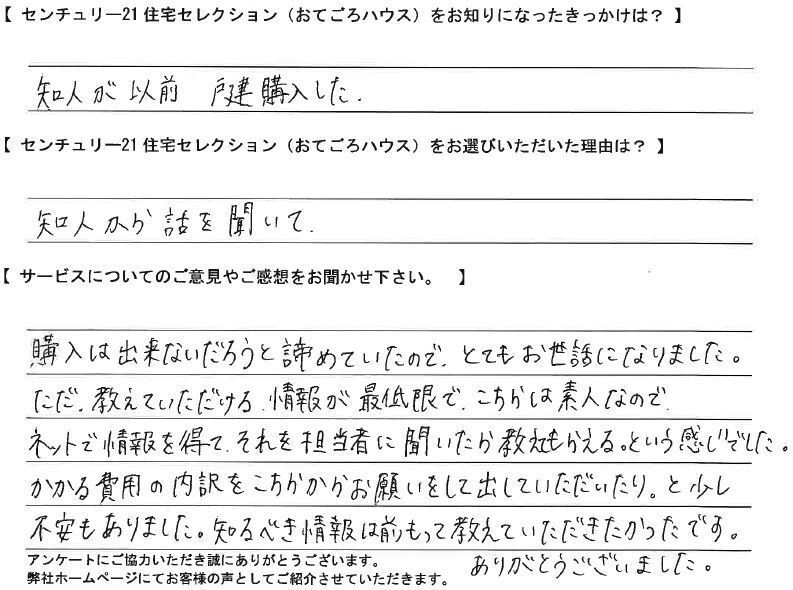 【 センチュリー21住宅セレクション（おてごろハウス）をお知りになったきっかけは？ 】
知人が以前 戸建購入した.
【 センチュリー21住宅セレクション（おてごろハウス）をお選びいただいた理由は？ 】
知人から話を聞いて.
【 サービスについてのご意見やご感想をお聞かせ下さい。 】
購入は出来ないだろうと諦めていたので、とてもお世話になりました。
ただ、教えていただける、情報が最低限で、こちらは素人なので、
ネットで情報を得て、それを担当者に聞いたら教えてもらえる。という感じでした。
かかる費用の内訳をこちらからお願いをして出していただいたり。と少し
不安もありました。知るべき情報は前もって教えていただきたかったです。
ありがとうございました。
アンケートにご協力いただき誠にありがとうございます。
弊社ホームページにてお客様の声としてご紹介させていただきます。